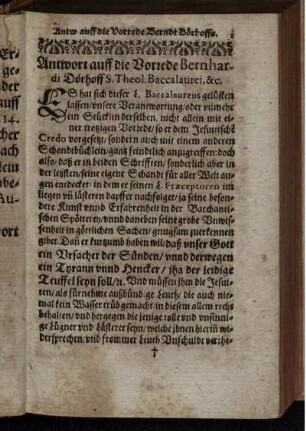 Antw auff die Vorrede Berndt Dörhoffs.
Antwort auff die Vorrede Bernhar-
di Dörhoff S. Theol. Baccalaurei, &c.
ES hat sich dieser L. Baccalaureus gelüsten
lassen / vnsere Verantwortung / oder vilmehr
ein Stücklin derselben, nicht allein mit ei-
ner trotzigen Vorrede / so er dem Jesuitische
Credo vorgesetzt / sondern auch mit einem anderen
Schandbüchlein / gantz feindlich anzugreiffen: doch
also / daß er in beiden Schrifften / sonderlich aber in
der letsten / seine eigene Schandt für aller Welt au-
gen entdecket: in dem er seinen L. Præceptoren im
liegen vñ lästeren dapffer nachfolget / ja seine beson-
dere Kunst vnnd Erfahrenheit in der Bacchanti-
schen Spötterei / vnnd daneben seine grobe Vnwis-
senheit in göttlichen Sachen / gnugsam zuerkennen
giber. Dañ er kurtzumb haben wil / daß vnser Gott
ein Vrsacher der Sünden / vnnd derwegen
ein Tyrann vnnd Hencker / jha der leidige
Teuffel seyn soll / ꝛc. Vnd müssen jhm die Jesui-
ten / als fürnehme außbündige Leuth / die auch nie-
mal kein Wasser trübgemacht / in diesem allem rechts
behalten / vnd hergegen die jenige tolle vnd vnsinni-
ge Lügner vnd Lästerer seyn / welche jhnen hierin wi-
dersprechen / vnd frommer Leuth Vnschuldt verthe-